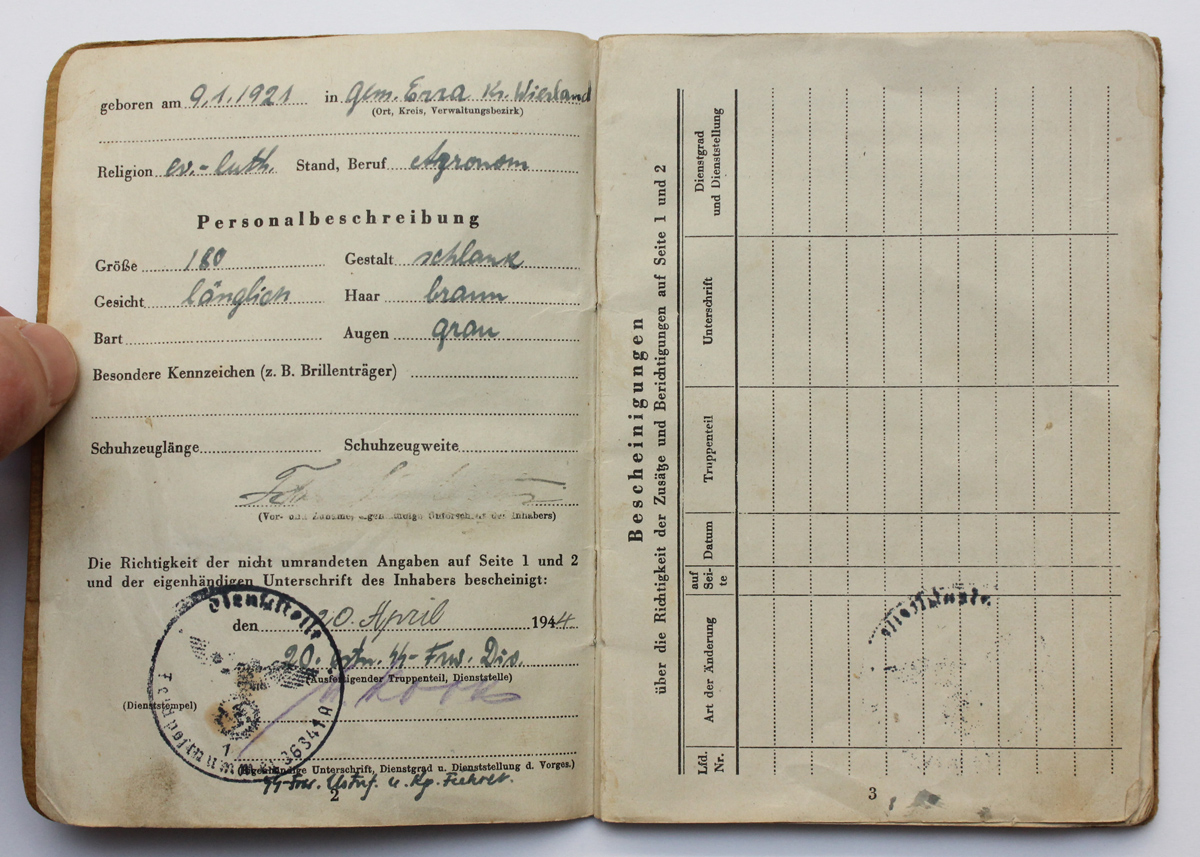 geboren am 9.1.1921 in Gem. Erra Kr. Wierland
(Ort, Kreis, Verwaltungsbezirk)
Religion ev.-luth. Stand, Beruf Agronom
Personalbeschreibung
Größe 180 Gestalt schlank
Gesicht länglich Haar braun
Bart Augen grau
Besondere Kennzeichen (z. B. Brillenträger)
Schuhzeuglänge Schuhzeugweite
(Vor- und Zuname, eigenhändige Unterschrift des Inhabers)
Die Richtigkeit der nicht umrandeten Angaben auf Seite 1 und 2
und der eigenhändigen Unterschrift des Inhabers bescheinigt:
den 20. April 1944
20. estn. SS-Frw. Div.
(Ausfertigender Truppenteil, Dienststelle)
(Dienststempel)
Dienststelle
Feldpostnummer 36341A
(Eigenhändige Unterschrift, Dienstgrad u. Dienststellung d. Vorges.)
SS-Frw. Ustuf. u. Kp. Führer.
2
Bescheinigungen
über die Richtigkeit der Zusätze und Berichtigungen auf Seite 1 und 2
Lfd.
Nr.
Art der Änderung
auf
Sei-
te
Datum
Truppenteil
Unterschrift
Dienstgrad
und Dienststellung
3